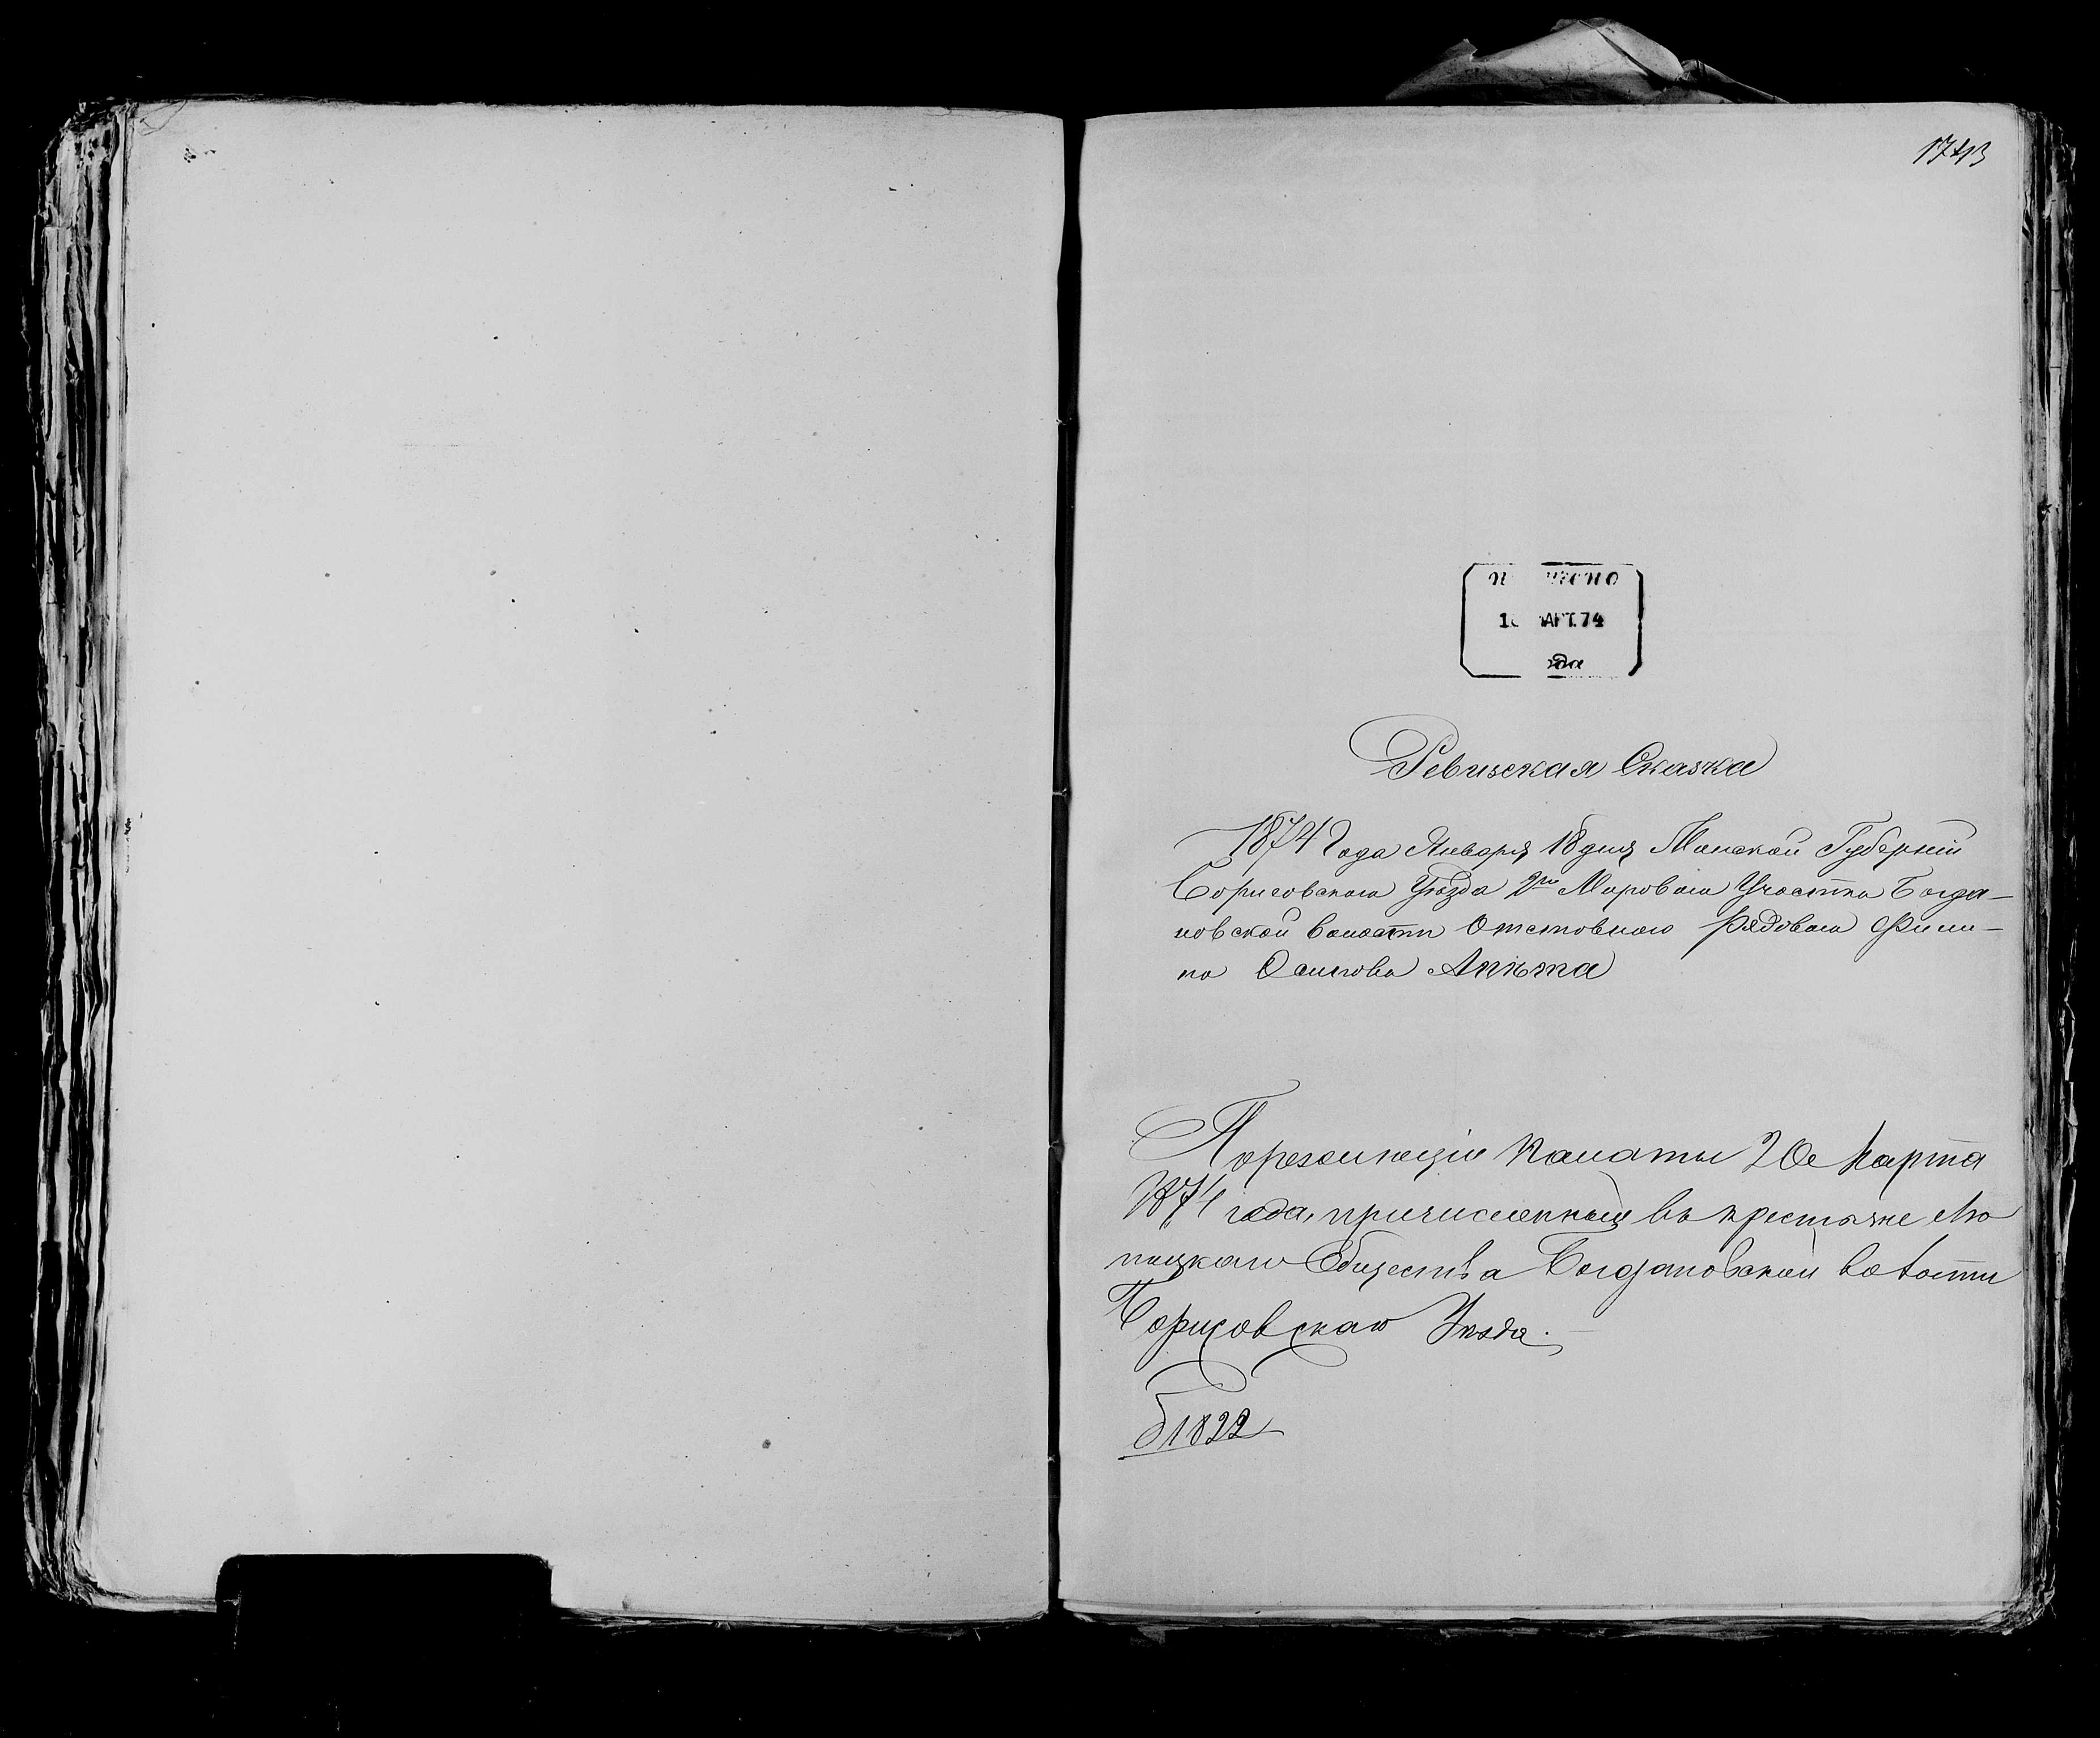 1743
74
Ревизская Сказка
1874 Года Января 18 дня Минской Губерніи
Борисовскаго Уѣзда 2го Мирового Участка Богда-
новской волости Отставного Рядоваго Фили-
па Осипова
По резолюціи Палаты 20 Марта
1874 года, причисленный въ крестьяне
Общества Богдановской волости
Борисовскаго Уѣзда.
1822